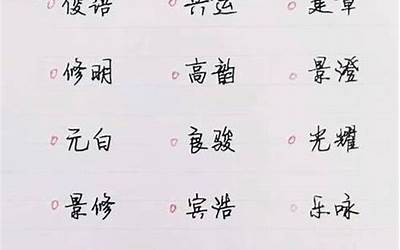 俊语 兴运 建章
修明 高韵 景澄
元白 良骏 光耀
景修 宾浩 乐咏